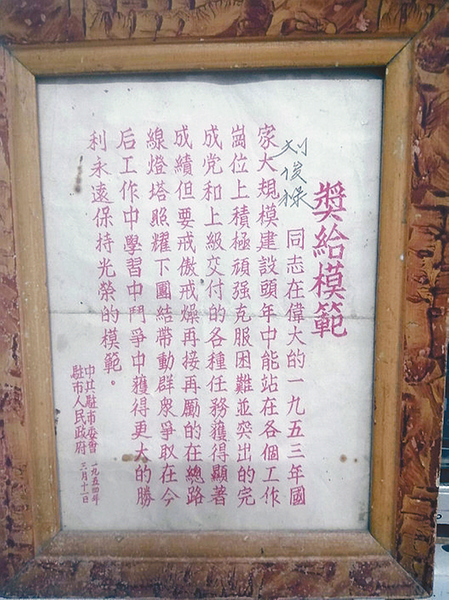 獎給模範
刘俊 同志在偉大的一九五三年國
家大規模建設頭年中能站在各個工作
崗位上積極頑强克服困難並突出的完
成党和上級交付的各种任務獲得顯著
成績但要戒傲戒燥再接再勵的在總路
線燈塔照耀下團結帶動群衆爭取在今
后工作中學習中鬥爭中獲得更大的勝
利永遠保持光荣的模範。
中共駐市委會
駐市人民政府
一九五四年
三月十一日